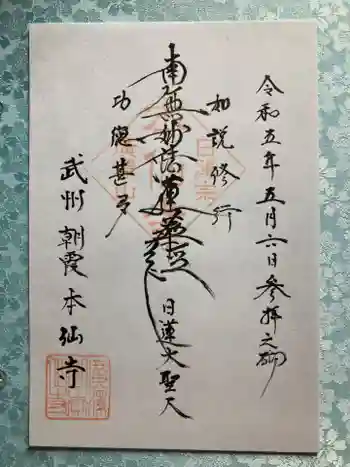 令和五年五月六日参拝之砌
如説修行
南無妙法蓮華経
日蓮大聖人
功徳甚多
武州朝霞本仙寺